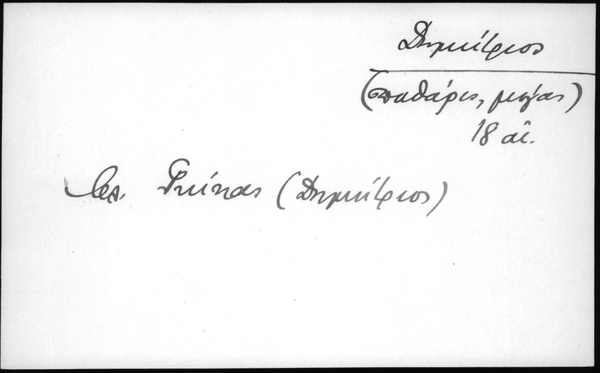 Δημήτριος
(σπαθάρις, μέγας)
18 αἰ.
Βλ. Γκίκας (Δημήτριος)